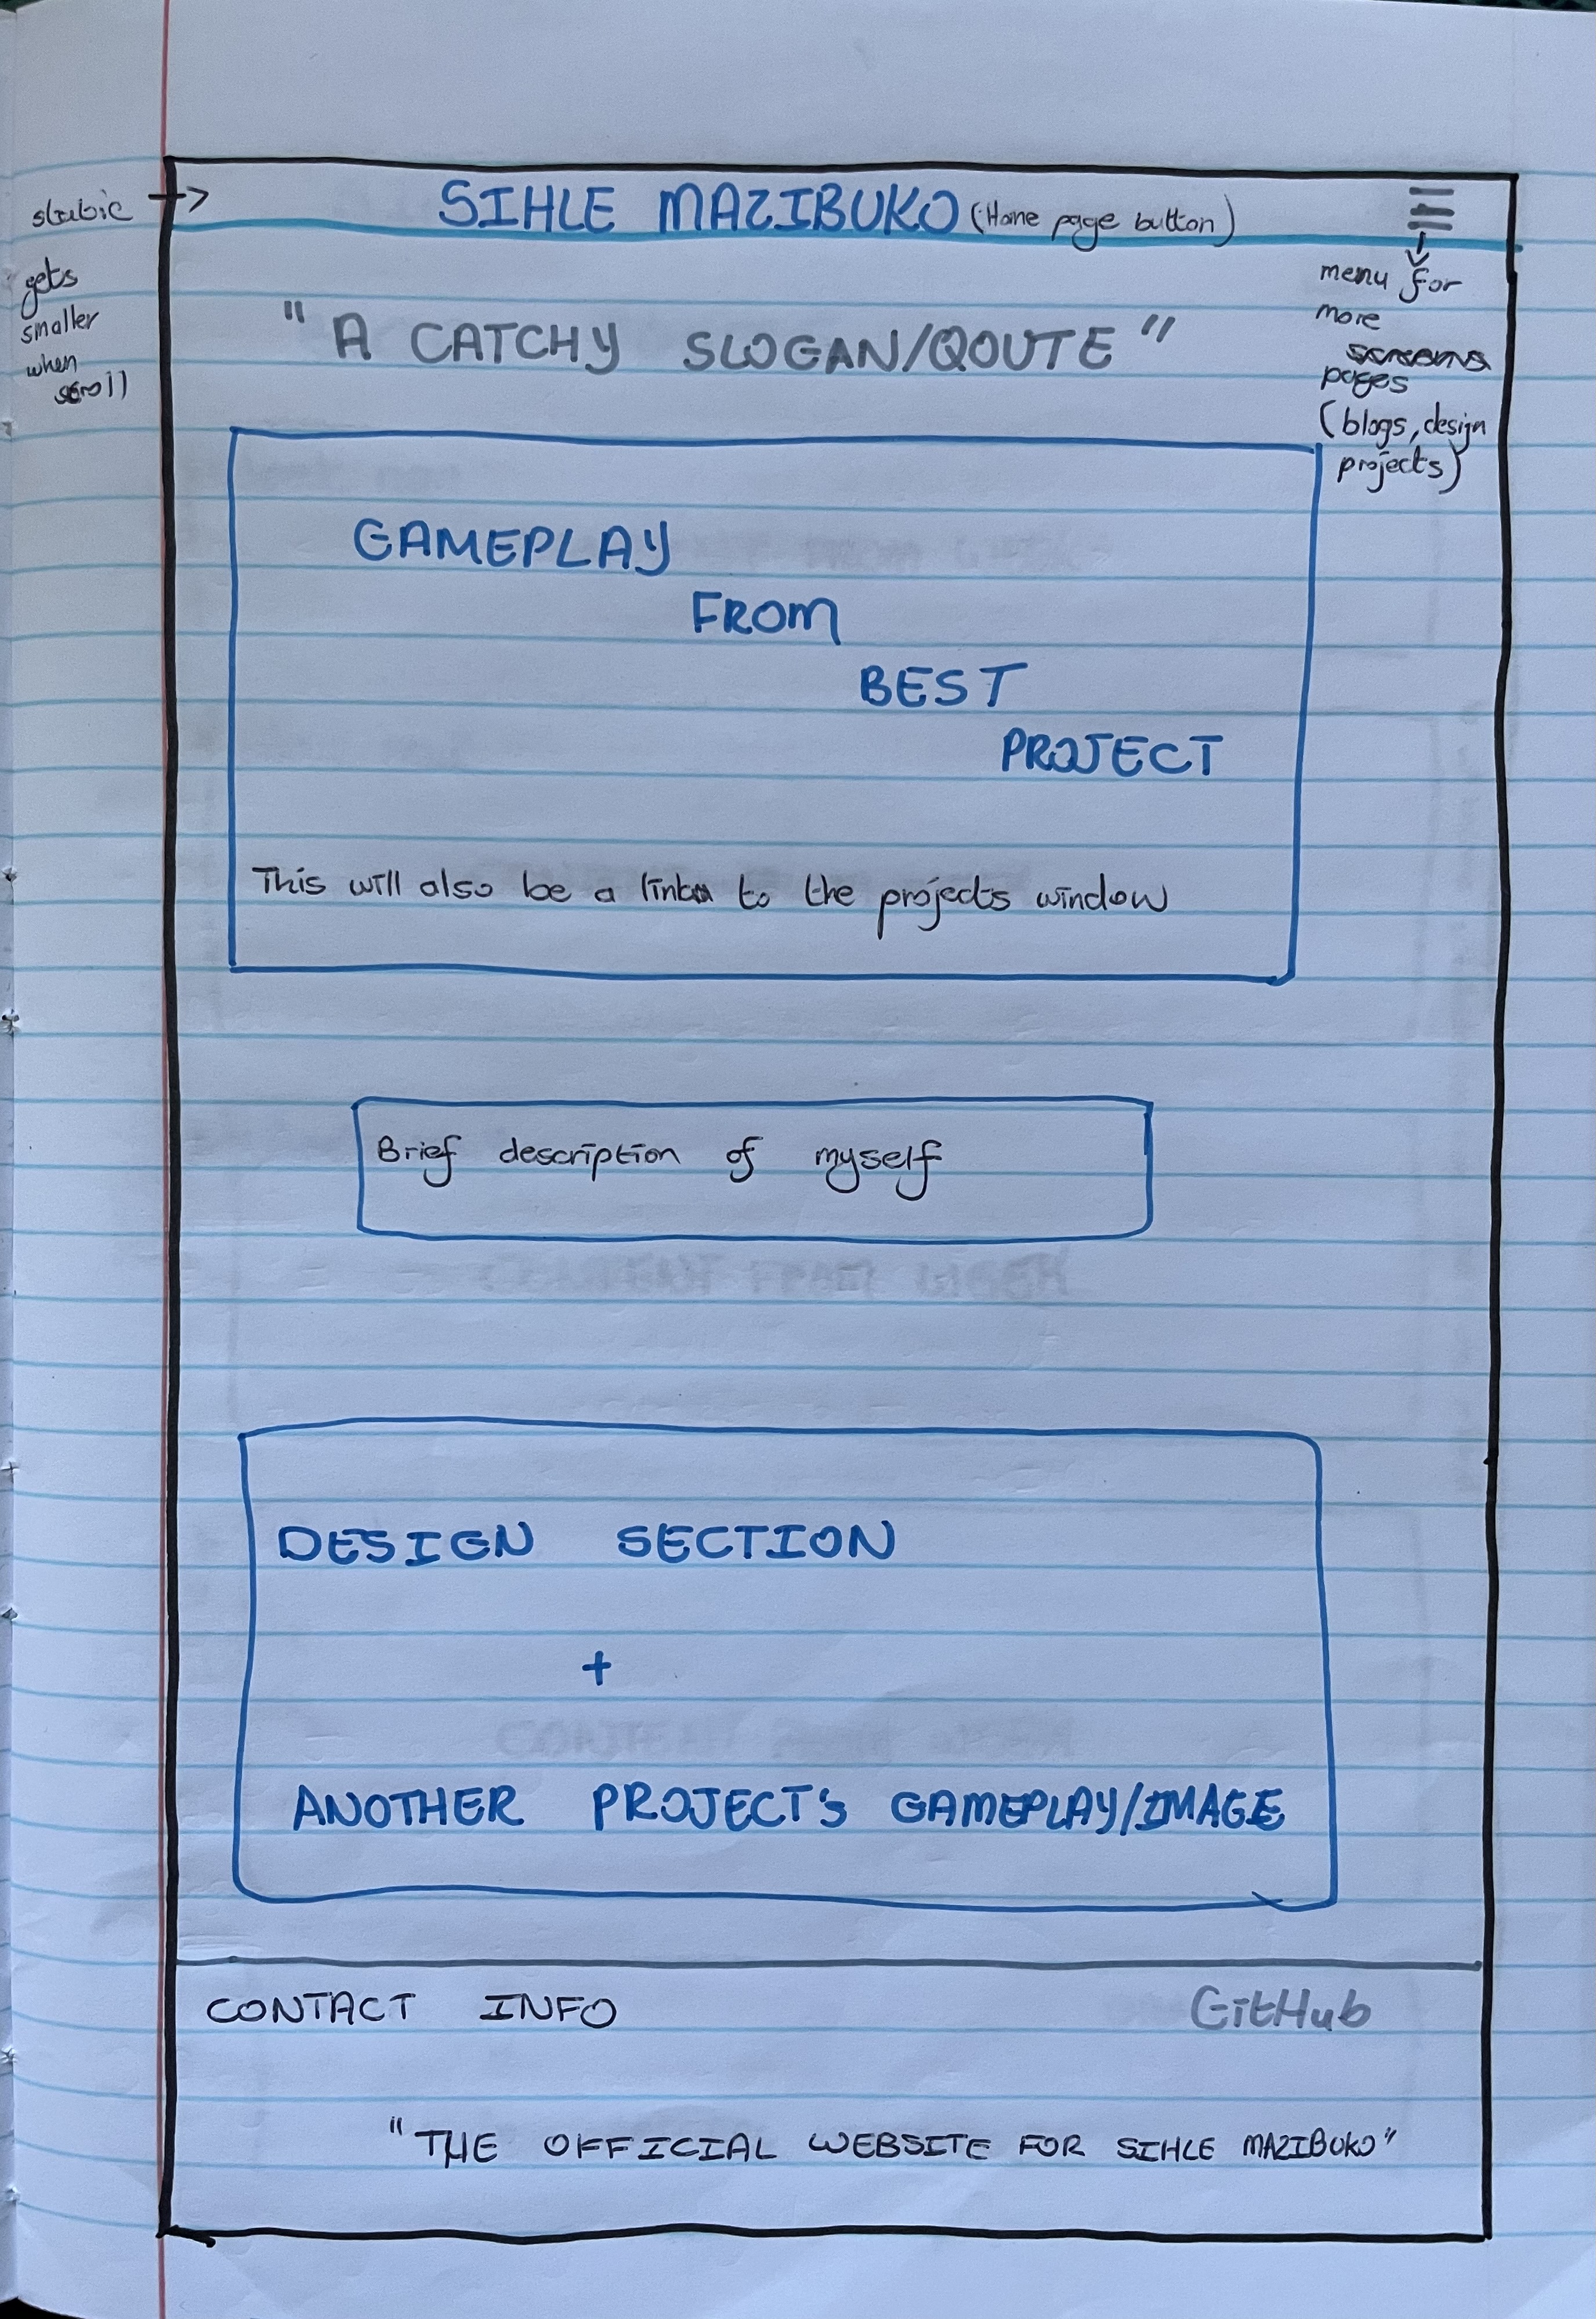 static
gets
smaller
when
scroll
SIHLE MAZIBUKO (Home page button)
menu for
more
pages
(blogs, design
projects)
"A CATCHY SLOGAN/QOUTE"
GAMEPLAY
FROM
BEST
PROJECT
This will also be a link to the projects window
Brief description of myself
DESIGN SECTION
+
ANOTHER PROJECT's GAMEPLAY/IMAGE
CONTACT INFO
GitHub
"THE OFFICIAL WEBSITE FOR SIHLE MAZIBUKO"